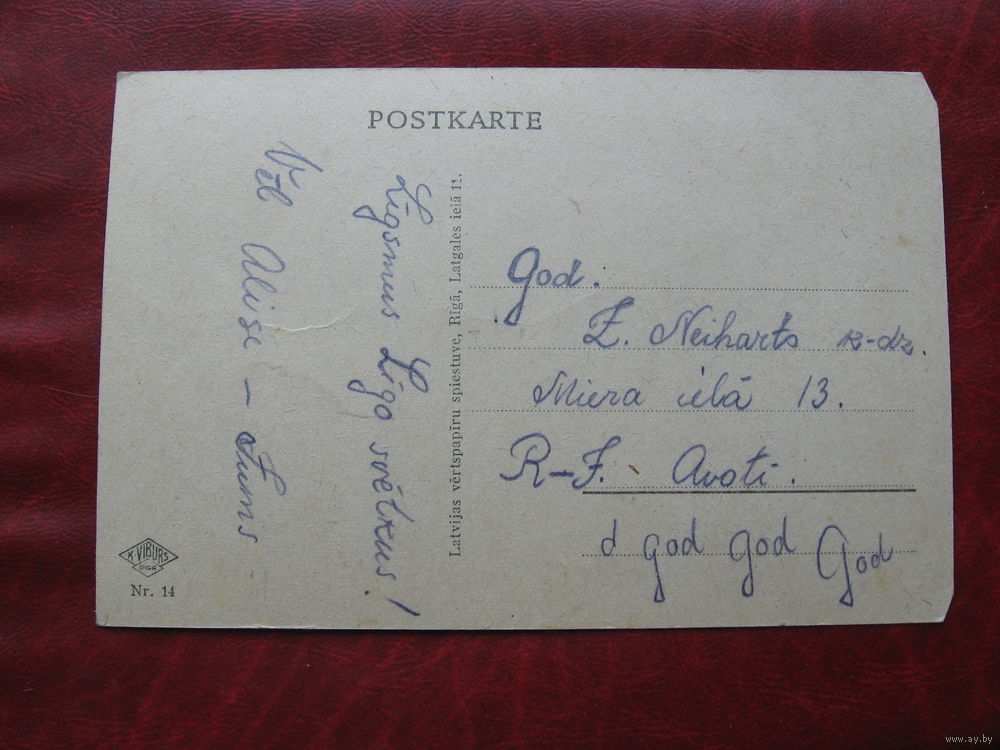 POSTKARTE
Līgsmus Līgo svētkus!
Vēl Alise – Fums
Latvijas vērtspapīru spiestuve, Rīgā, Latgales ielā 11.
God.
Z. Neiharts k-dz.
Miera ielā 13.
R–J. Avoti.
d god god God
K. VIBURS
RIGA
Nr. 14
www.ay.by